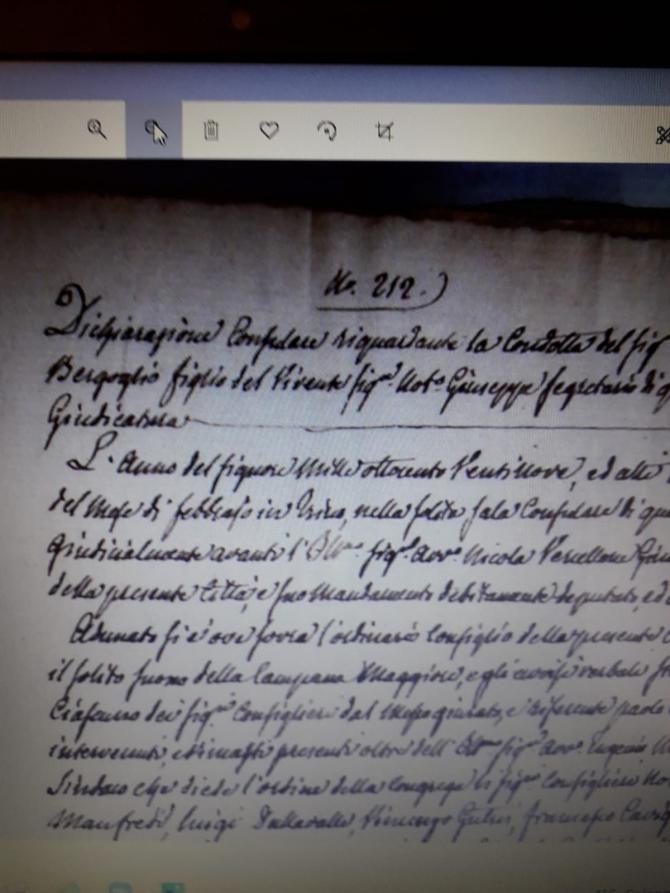 No. 212.)
Dichiarazione Consulare riguardante la Condotta del sig
Bergoglio figlio del Vivente sigr. Noto Giuseppe segretario di q
Giudicatura
L'Anno del signore Mille ottocento Ventinove, ed alli
del Mese di febbrajo in Trino, nella solita sala Consulare di qu
giudicialmente avanti l'Illmo. sigr. avvo. Nicola Vercellone Giu
della presente Città, e suo Mandamento debitamente deputato, ed
Adunato si è ove sovra l'ordinario Consiglio della presente
il solito suono della Campana Maggiore, e gli avvisi verbali
Ciascuno dei sigri Consiglieri dal Messo giurato, e riferente
intervenuti, e rimasti presenti oltre dell' Illmo sigr avvo. Eugenio
Sindaco che diede l'ordine della Congrega li sigri Consiglieri
Manfredi, Luigi Dallavalle, Vincenzo francesco